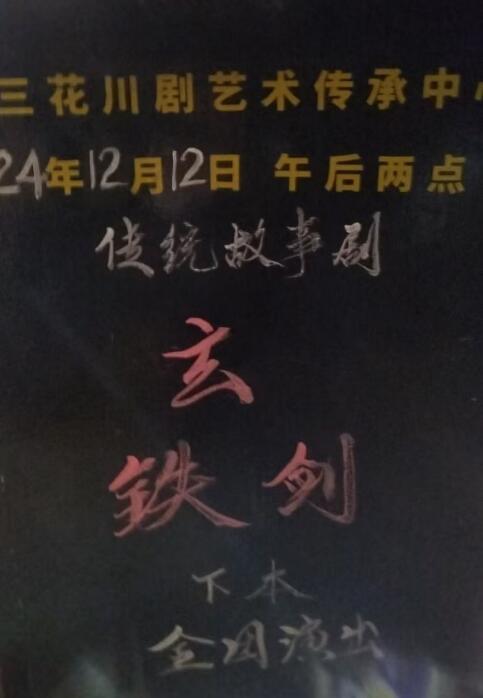 三花川剧艺术传承中心
24年12月12日 午后两点
传统故事剧
玄
铁剑
下本
全团演出